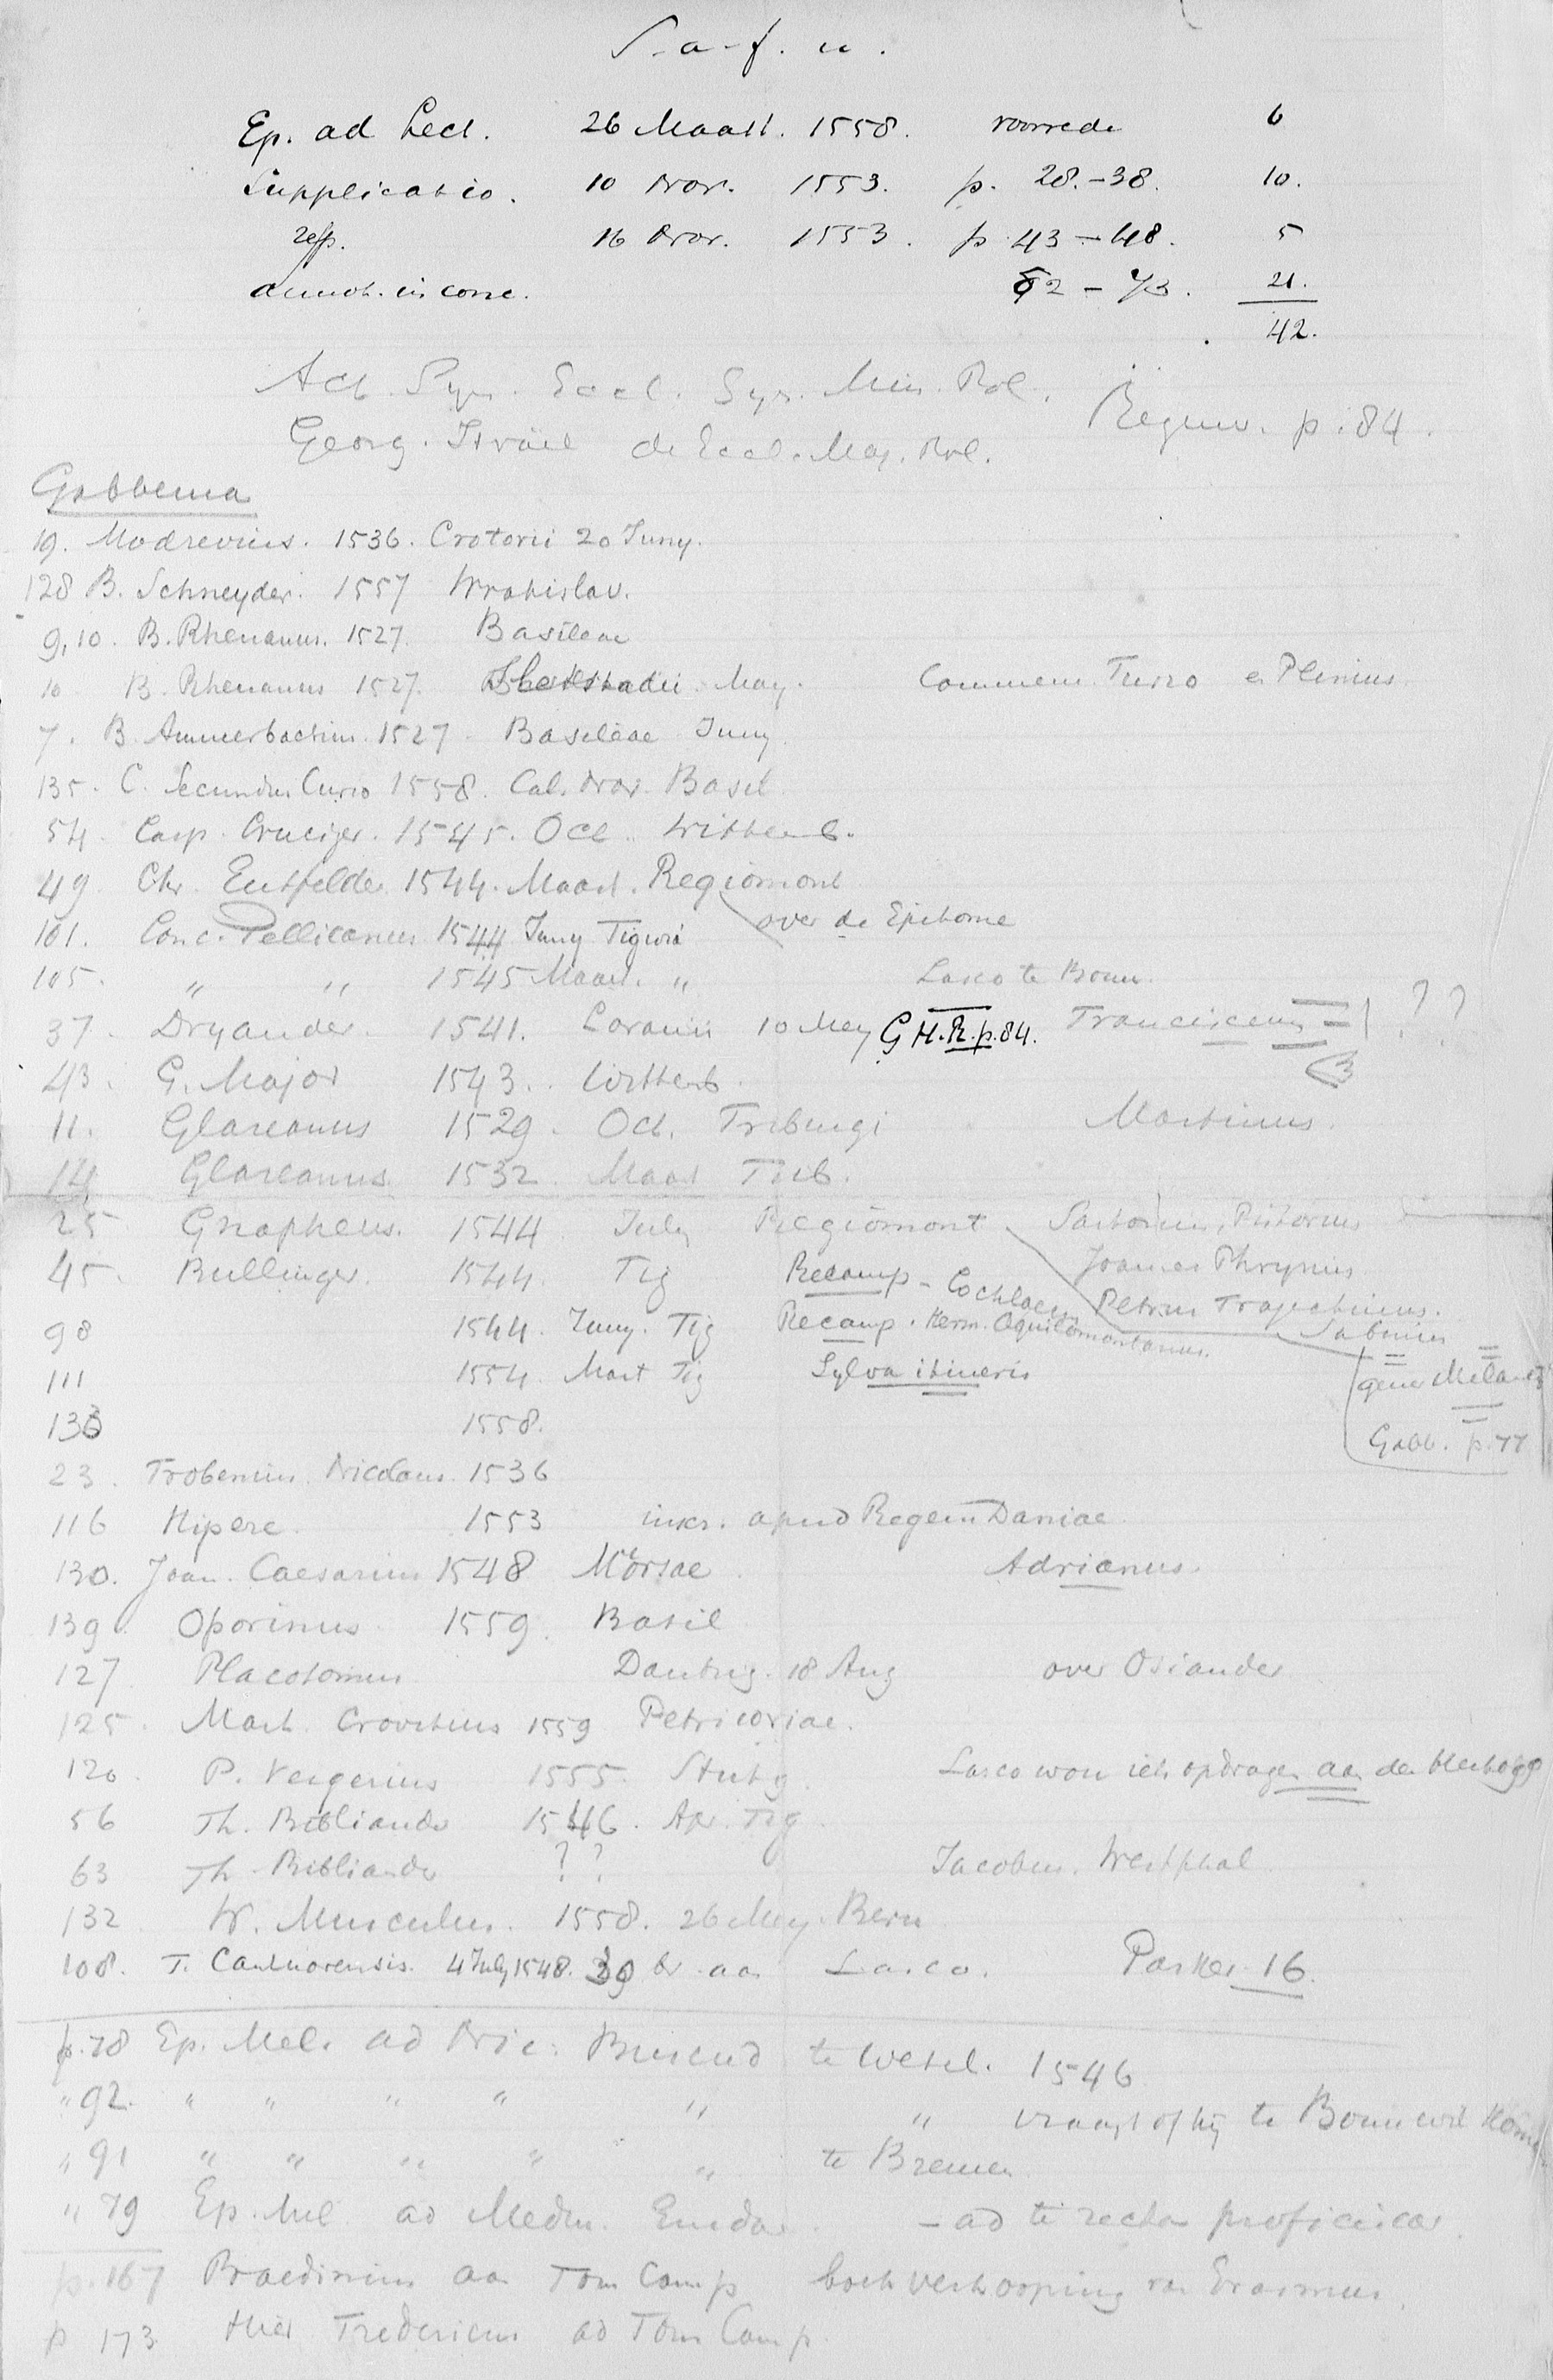 S. a-f. u.
Ep. ad Lect. 26 Maart. 1558. voorrede 6
Supplicatio. 10 Nov. 1553. p. 28.-38. 10.
resp. 16 Nov. 1553. p 43-48. 5
Annot. in conc. 52-73. 21.
42.
Act. Syn. Eccl. Syn. Min. Pol.
Georg. Israël de Eccl. Maj. Pol. Regenv. p. 84.
Gabbema
19. Modrevius. 1536. Crotorii 20 Juny.
128 B. Schneyder. 1557 Wratislav.
9,10. B. Rhenanus. 1527. Basileae
10 B. Rhenanus 1527. May. Commem. Turzo en Plinius.
7. B. Ammerbachius. 1527. Basileae Juny
135. C. Secundus Curio 1558. Cal. Nov. Basel.
54. Casp. Cruciger. 1545. Oct. Wittenb.
49. Chr. Entfelder. 1544. Maart. Regiomont
over de Epitome
101. Conr. Pellicanus 1544 Juny Tiguri
105. " " 1545 Maart. " Lasco te Bonn.
37. Dryander. 1541. Lovanii 10 Mey G H.R. p.84. Franciscus = ??
43. G. Major 1543. Wittenb.
11. Glareanus 1529. Oct. Friburgi Martinus.
14 Glareanus 1532. Maart Frib.
25 Gnapheus. 1544 July Regiomont Sartorius, Pistorius
Joannes Phrynus
45. Bullinger. 1544. Tig Recamp - Cochlaeus Petrus Trajectinus.
Sabinus
98 1544. Juny. Tig Recamp. Herm. Aquilomontanus.
111 1554. Mart Tig Sylva itineris
gener Melanch
133 1558.
Gabb. p. 77
23. Frobenius Nicolaus 1536
116 Hipere. 1553 inscr. apud Regem Daniae
130. Joan. Caesarius 1548 Mörsae Adrianus.
139. Oporinus 1559. Basil
127 Placotomus Dantzig. 18 Aug over Osiander
125. Mart. Crovitius 1559 Petricoviae.
120. P. Vergerius 1555. Stutg. Lasco wou iets opdragen aan den Hertog
56 Th. Bibliander 1546. Apr. Tig.
63 Th. Bibliander ?? Jacobus. Westphal
132 W. Musculus. 1558. 26 Mey. Bern
108. T. Cantuarensis. 4 July 1548. 39 br aan Lasco. Parker 16.
p. 78 Ep. Mel. ad Nic. Buscud te Wesel. 1546
" 92. " " " " " " vraagt of hij te Bonn wil komen
" 91 " " " " " te Bremen
" 79 Ep. Mel ad Medm. Emdae - ad te recta proficiscar.
p. 167 Praedinius aan Tom Camp boekverkooping van Erasmus.
p 173 Hier. Fredericus ad Tom Camp.